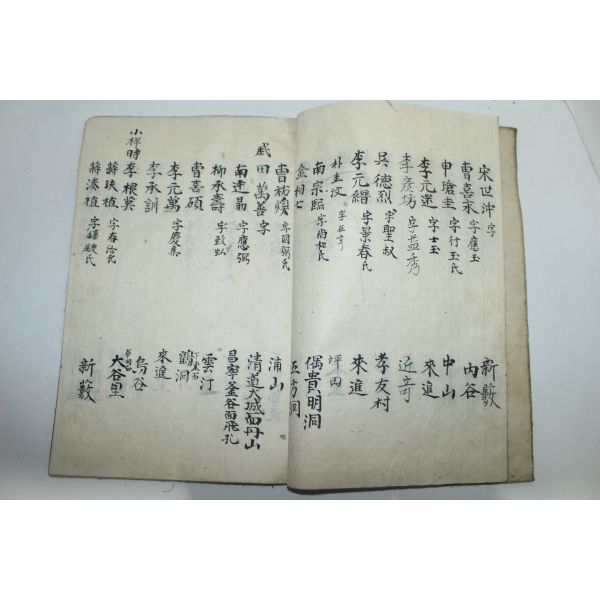 宋世沖 字 新藪
曺喜永 字應玉 內谷
申瑲圭 字行玉氏 中山
李元述 字士玉 來進
李彦坊 字益秀 近奇
吳德烈 字聖叔 孝友村
李元縉 字景春氏 來進
朴圭汶 字 坪田
南宗臨 字尙松氏 偶貴明洞
金相七
曺祐煥 字國弼氏 浦山
戚 田萬善 字 清道大城面丹山
南建昜 字應弼 昌寧釜谷面飛孔
柳承壽 字致 雲汀
曺喜碩 鶴洞
李元萬 字慶集 來進
李承訓 烏谷
小祥時 李根英 大谷里
蔣珖植 字春 氏
蔣湊植 字 氏 新藪